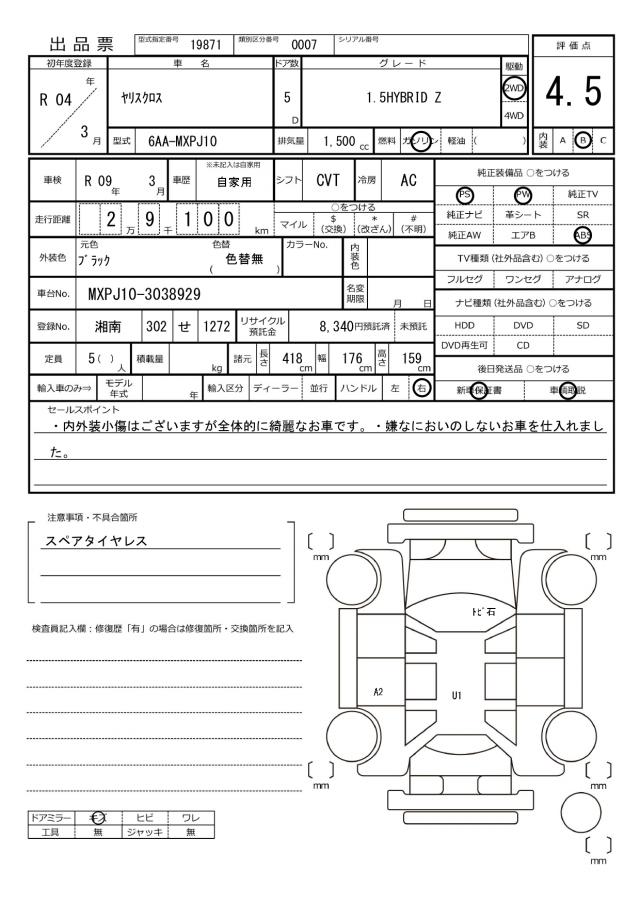 出品票
型式指定番号 19871 類別区分番号 0007 シリアル番号
評価点
4.5
初年度登録 車名 ドア数 グレード 駆動
R 04 年 3 月
ヤリスクロス
5 D
1.5HYBRID Z
2WD
4WD
型式 6AA-MXPJ10 排気量 1,500 cc 燃料 ガソリン 軽油 ( )
内装 A B C
車検 R 09 年 3 月 車歴 ※未記入は自家用 自家用 シフト CVT 冷房 AC
走行距離 2 万 9 千 1 0 0 km
○をつける
マイル $ (交換) * (改ざん) # (不明)
外装色 元色 ブラック 色替 ( 色替無 ) カラーNo. 内装色
車台No. MXPJ10-3038929 名変期限 月 日
登録No. 湘南 302 せ 1272 リサイクル預託金 8,340円預託済 未預託
定員 5( ) 人 積載量 kg 諸元 長さ 418 cm 幅 176 cm 高さ 159 cm
輸入車のみ⇒ モデル年式 年 輸入区分 ディーラー 並行 ハンドル 左 右
純正装備品 ○をつける
PS PW 純正TV
純正ナビ 革シート SR
純正AW エアB ABS
TV種類(社外品含む)○をつける
フルセグ ワンセグ アナログ
ナビ種類(社外品含む)○をつける
HDD DVD SD
DVD再生可 CD
後日発送品 ○をつける
新車保証書 車輌取説
セールスポイント
・内外装小傷はございますが全体的に綺麗なお車です。・嫌なにおいのしないお車を仕入れまし
た。
注意事項・不具合箇所
スペアタイヤレス
検査員記入欄:修復歴「有」の場合は修復箇所・交換箇所を記入
〔 〕
mm
〔 〕
mm
トビ石
A2
U1
〔 〕
mm
〔 〕
mm
〔 〕
mm
ドアミラー キズ ヒビ ワレ
工具 無 ジャッキ 無